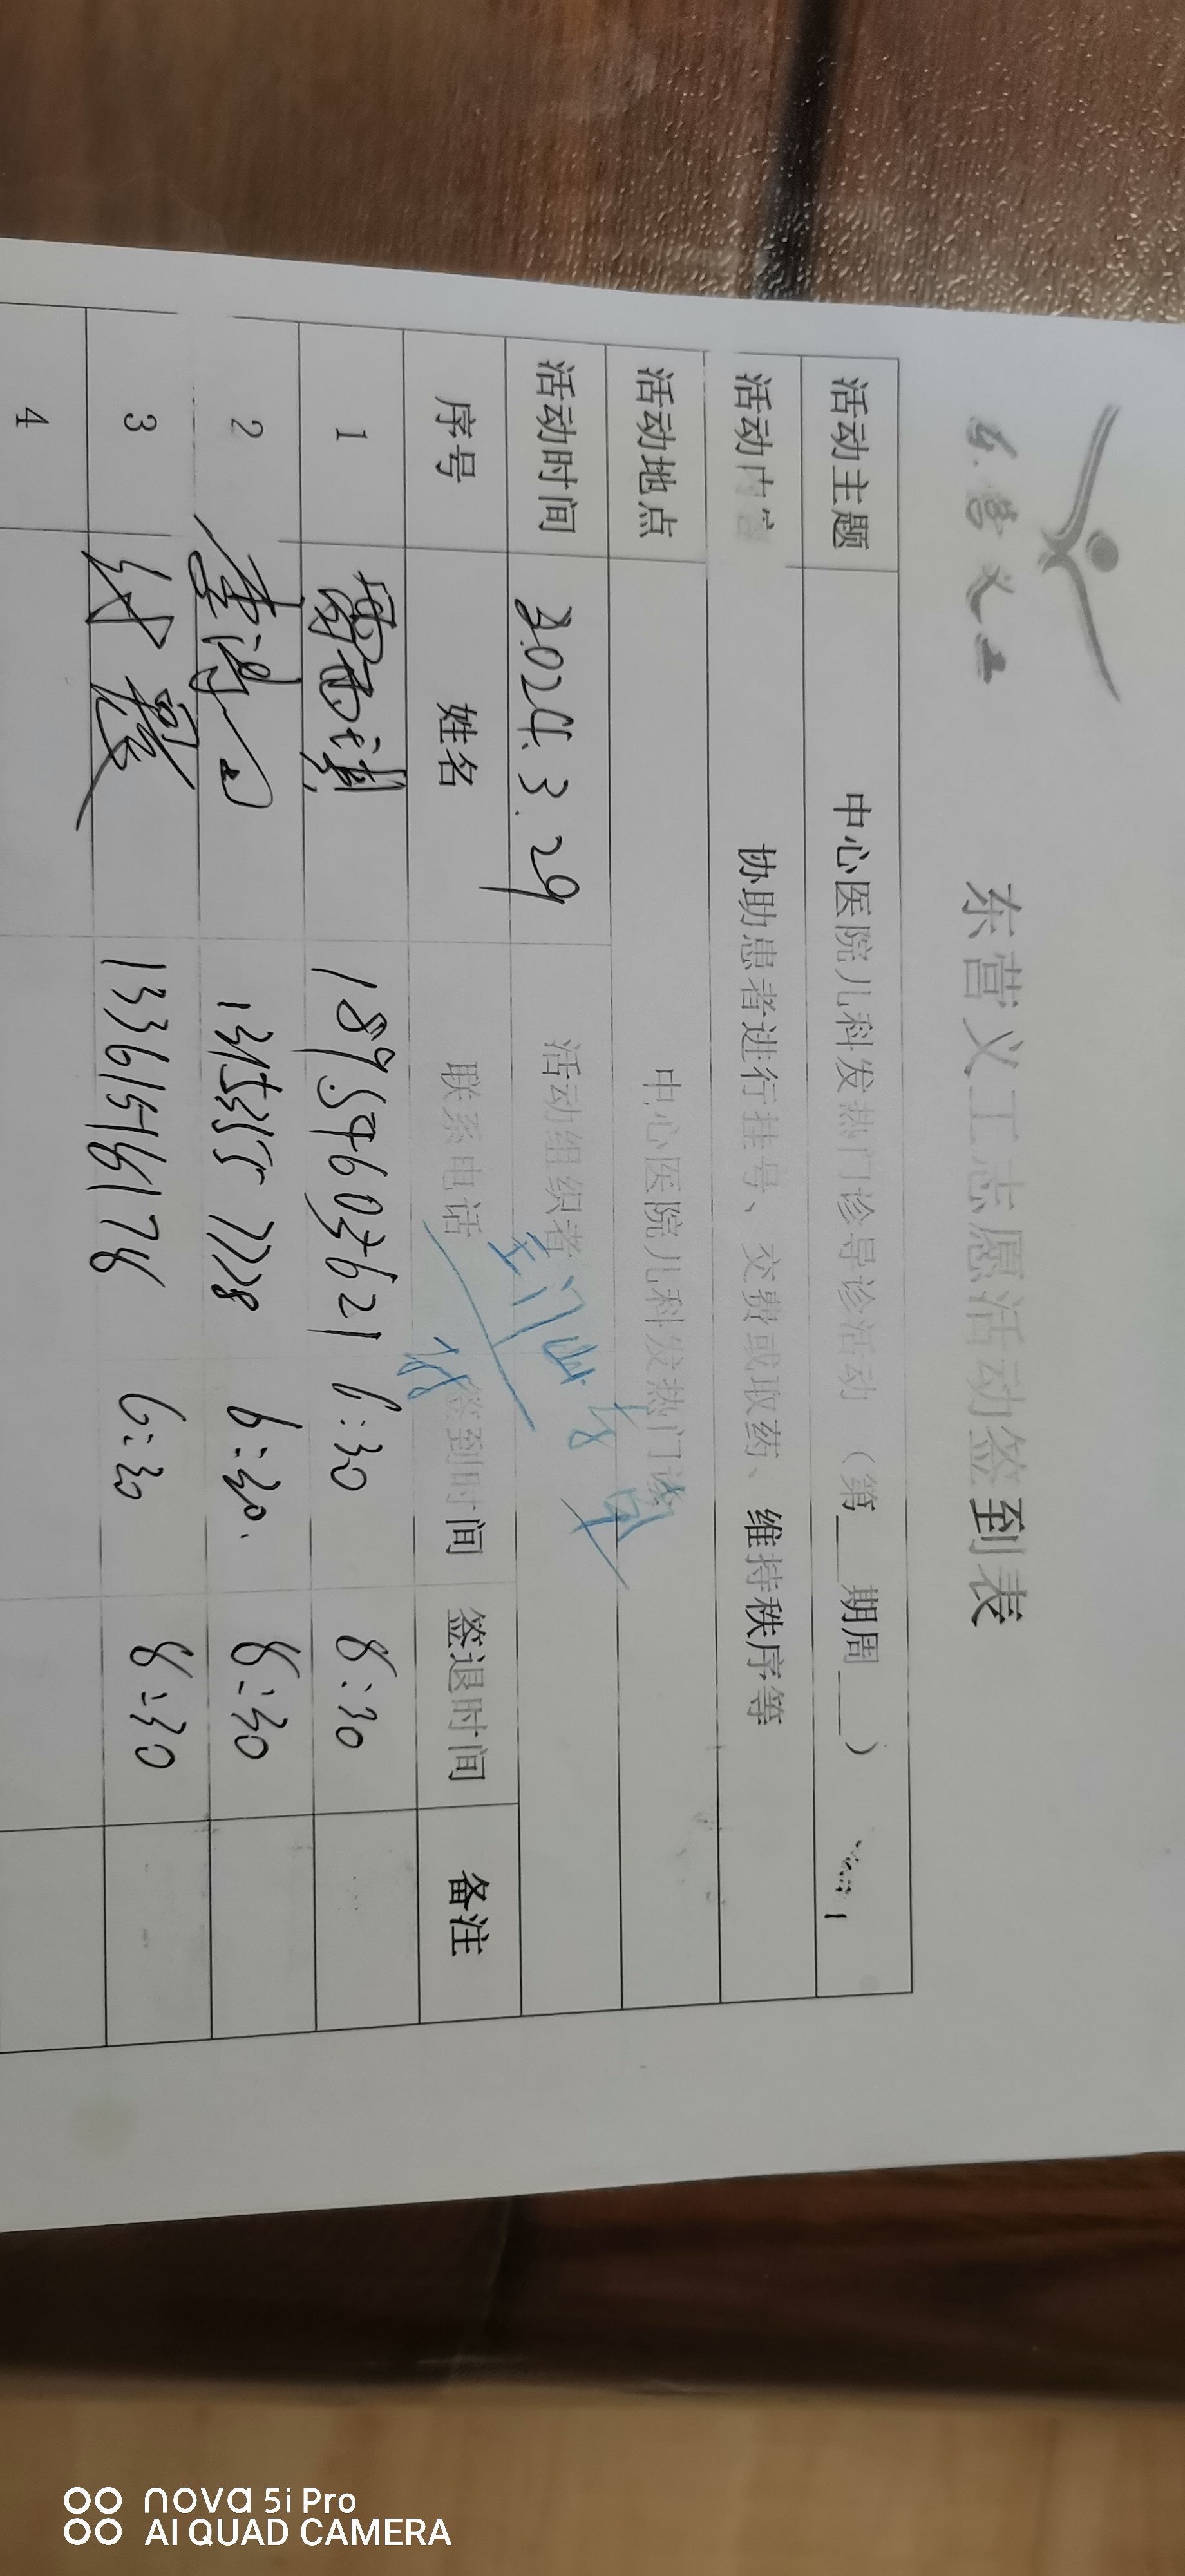 东营义工
东营义工志愿活动签到表
活动主题 中心医院儿科发热门诊导诊活动 （第___期周___）
活动内容 协助患者进行挂号、交费或取药、维持秩序等
活动地点 中心医院儿科发热门诊
活动时间 2024.3.29 活动组织者
序号 姓名 联系电话 签到时间 签退时间 备注
1 18954603621 6:30 8:30
2 6:30. 8:30
3 6:30 8:30
4
nova 5i Pro
AI QUAD CAMERA